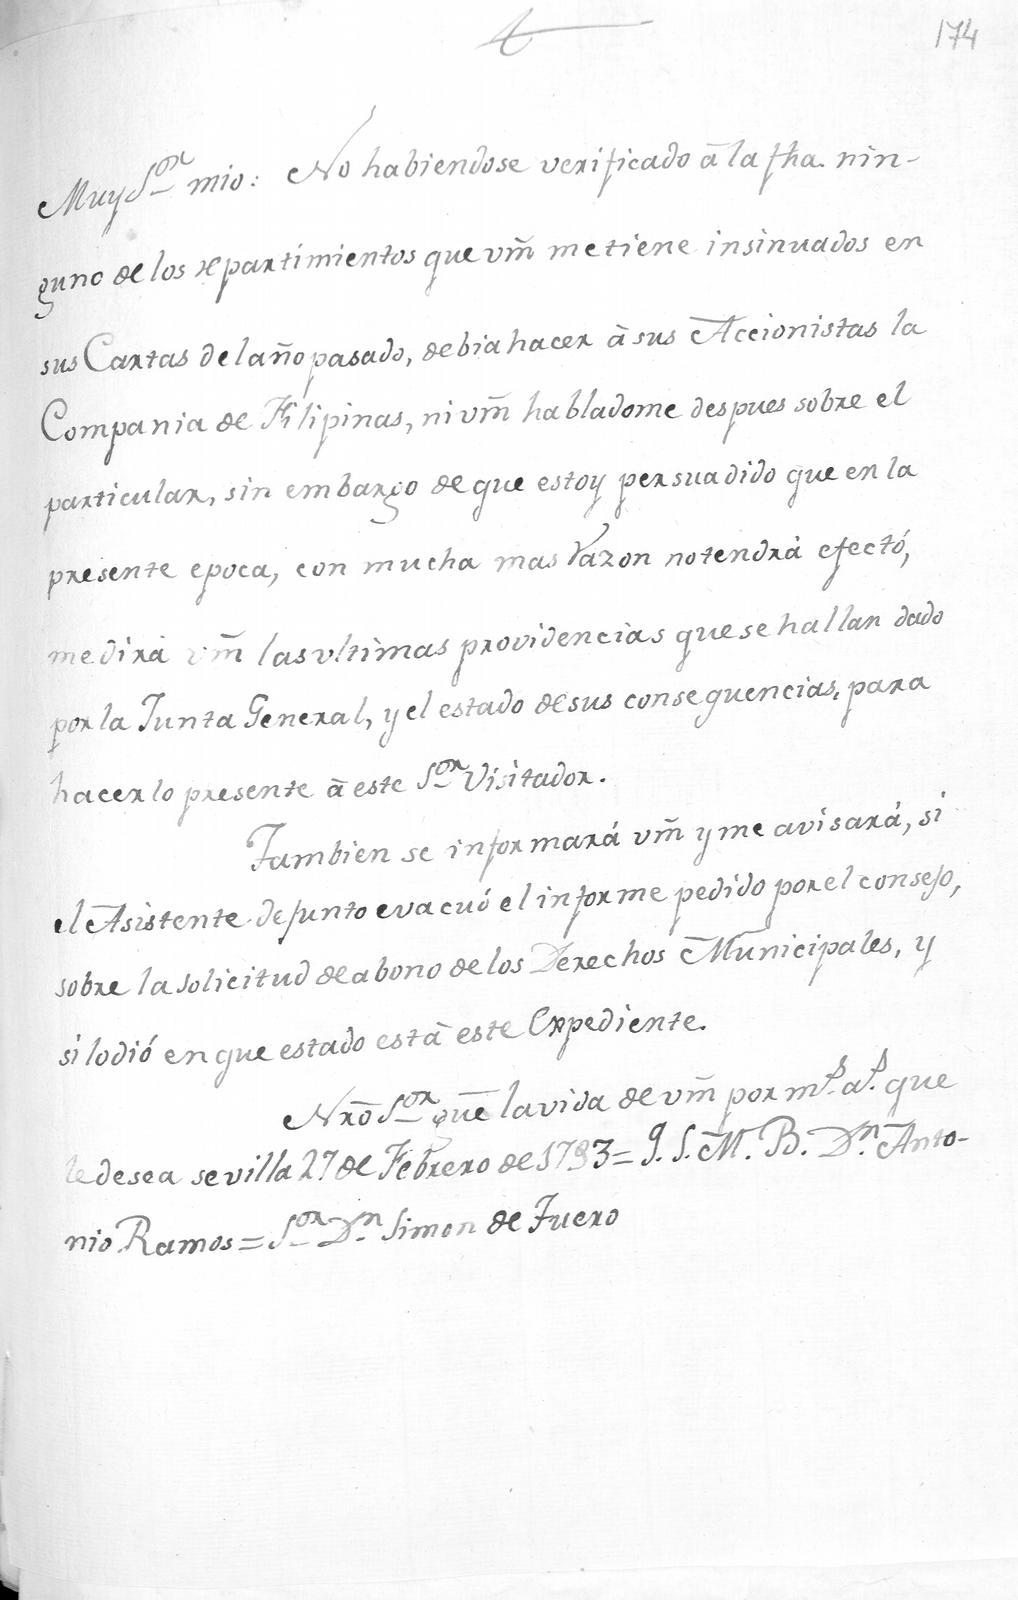 174
Muy S.or mio: No habiendose verificado à la fha. nin-
guno de los repartimientos que vm̃ me tiene insinuados en
sus Cartas del año pasado, debia hacer à sus Accionistas la
Compania de Filipinas, ni vm̃ habladome despues sobre el
particular, sin embargo de que estoy persuadido que en la
presente epoca, con mucha mas razon no tendrà efectó,
me dirà vm̃ las vltimas providencias que se hallan dado
por la Junta General, y el estado de sus consequencias, para
hacerlo presente à este S.or Visitador.
Tambien se informará vm̃ y me avisará, si
el Asistente defunto evacuó el informe pedido por el consejo,
sobre la solicitud de abono de los Derechos Municipales, y
si lo dió en que estado està este Expediente.
Nrõ S.or gũe la vida de vm̃ por m.s a.s que
le desea sevilla 27 de Febrero de 1793 = q. S. M. B. D.n Anto-
nio Ramos = S.or D.n Simon de Fuero